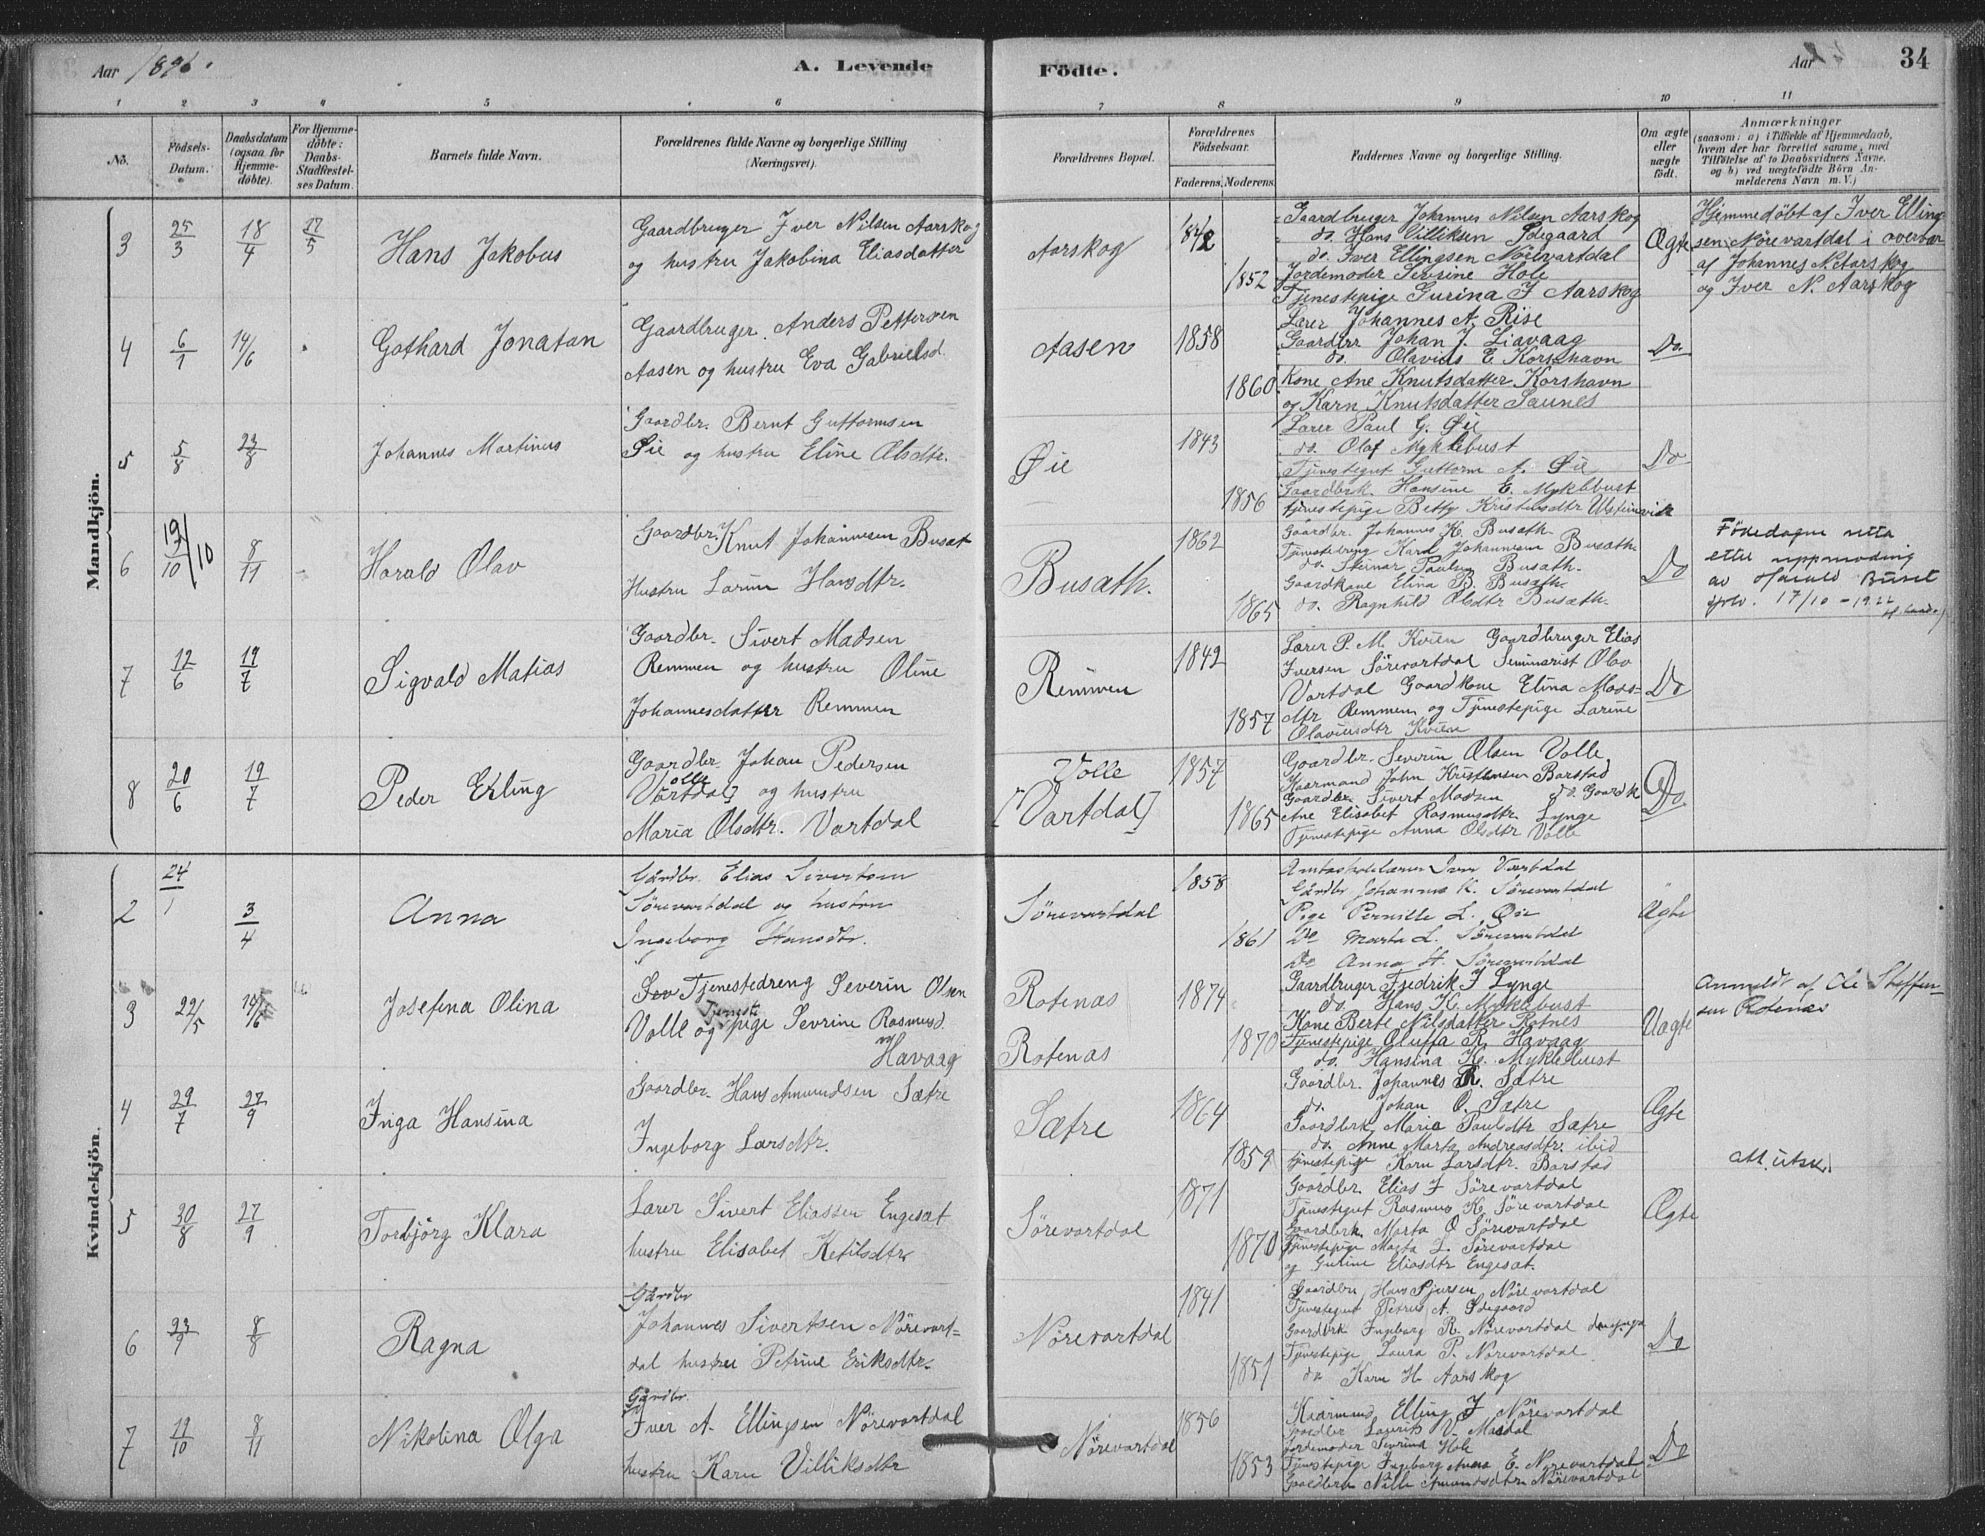 Aar 1896.
A. Levende
Födte.
Aar
34
1 2 3 4 5 6 7 8 9 10 11
No.
Födsels-Datum.
Daabsdatum (ogsaa for Hjemme-döbte).
For Hjemme-döbte: Daabs-Stadfæstelses Datum.
Barnets fulde Navn.
Forældrenes fulde Navne og borgerlige Stilling (Næringsvei).
Forældrenes Bopæl.
Forældrenes Födselsaar.
Faderens. Moderens.
Faddernes Navne og borgerlige Stilling.
Om ægte eller uægte födt.
Anmærkninger
(saasom: a) i Tilfælde af Hjemmedaab, hvem der har forrettet samme, med Tilföielse af to Daabsvidners Navne, og b) ved uægtefödte Börn Anmelderens Navn m. V.)
Mandkjön.
3 25/3 18/4 17/5 Hans Jakobus
Gaardbruger Iver Nilsen Aarskog
og hustru Jakobina Eliasdatter
Aarskog
1842
1852
Gaardbruger Johannes Nilsen Aarskog
do. Hans Villiksen Ødegaard
do. Iver Ellingsen Nörevartdal
Jordemoder Sevrine Hole
Tjenestepige Gurina I Aarskog
Ægte
Hjemmedöbt af Iver Elling-
sen Nörevartdal i overvær
af Johannes N. Aarskog
og Iver N. Aarskog
4 6/1 14/6 Gothard Jonatan
Gaardbruger. Anders Pettersen
Aasen og hustru Eva Gabrielsd.
Aasen
1858
1860
Lærer Johannes A. Rise
Gaardbr Johan J. Liavaag
do. Olavius E. Korshavn
Kone Ane Knutsdatter Korshavn
og Karn Knutsdatter Saunes
Do
5 5/8 23/8 Johannes Martinus
Gaardbr. Bernt Guttormsen
Øie og hustru Eline Olsdtr.
Øie
1843
1856
Lærer Paul G. Øie
do. Olaf Myklebust
Tjenestegut Guttorm A. Øie
Gaardbrk. Hansine E. Myklebust
tjenestepige Betty Kristensdtr Ulsteinvik
Do
6 19/10 8/11 Harald Olav
Gaardbr. Knut Johannesen Busæt
Hustru Larine Hansdtr.
Busæth.
1862
1865
Gaardbr. Johannes K. Busæth
Tjenestedreng Karl Johannesen Busæth
do. Steinar Paulsen Busæth.
Gaardkone Elina B. Busæth.
do. Ragnhild Olsdtr Busæth.
Do
Födedagen retta
etter uppmoding
av Harald Buset
17/10 - 1922
7 12/6 19/7 Sigvald Matias
Gaardbr. Sivert Madsen
Remmen og hustru Oline
Johannesdatter Remmen
Remmen
1842
1857
Lærer P. M. Kvien Gaardbruger Elias
Iversen Sörevartdal Seminarist Olav
Vartdal Gaardkone Elina Mads-
dtr Remmen og Tjenestepige Larine
Olaviusdtr Kvien
Do
8 20/6 19/7 Peder Erling
Gaardbr. Johan Pedersen
Volle
[Vartdal] og hustru
Maria Olsdtr. Vartdal
Volle
[Vartdal]
1857
1865
Gaardbr. Severin Olsen Volle
Kaarmand John Kristensen Barstad
Gaardbr. Sivert Madsen do. Gaardk
Ane Elisabet Rasmusdtr. Lynge
Tjenestepige Anna Olsdtr Volle
Do
Kvindekjön.
2 24/1 3/4 Anna
Gårdbr. Elias Sivertsen
Sörevartdal og hustru
Ingeborg Hansdtr.
Sörevartdal
1858
1861
Amtsskolelærer Iver Vartdal
Gårdbr Johannes K. Sörevartdal
Pige Pernille L. Øie
Do Marta L. Sörevartdal
Do Anna H. Sörevartdal
Ægte
3 22/5 14/6 Josefina Olina
Tjenestedreng Severin Olsen
Volle og Tjenestepige Sevrine Rasmusd.
Havaag
Rotenas
Rotenas
1874
1870
Gaardbruger Fredrik J Lynge
do. Hans K. Myklebust
Kone Berte Nilsdatter Rotnes
Tjenestepige Oluffa R. Havaag
do. Hansina K. Myklebust
Uægte
Anmeldt af Ole Steffen-
sen Rotenæs
4 29/7 27/9 Inga Hansina
Gaardbr. Hans Amundsen Sætre
Ingeborg Larsdtr.
Sætre
1864
1859
Gaardbr. Johannes R. Sætre
do. Johan O. Sætre
Gaardbrk. Maria Paulsdtr Sætre
do. Anne Marta Andreasdtr. ibid
tjenestepige Karn Larsdtr. Barstad
Ægte
att. utsk.
5 30/8 27/9 Torbjörg Klara
Lærer Sivert Eliassen Engesæt
hustru Elisabet Ketilsdtr
Sörevartdal
1871
1870
Gaardbr. Elias I Sörevartdal
Tjenestegut Rasmus K. Sörevartdal
Gaardbrk. Marta O Sörevartdal
Tjenestepige Marta L. Sörevartdal
og Guline Eliasdtr Engesæt.
Ægte
6 23/9 8/8 Ragna
Gårdbr
Johannes Sivertsen Nörevart-
dal hustru Petrine Eriksdtr.
Nörevartdal
1841
1851
Gaardbr. Hans Sjursen Nörevartdal
Tjenestegut Petrus A. Ödegaard
Gaardbrk Ingeborg R. Nörevartdal
Tjenestepige Laura P. Nörevartdal
do. Karn H. Aarskog
Do
7 19/10 8/11 Nikolina Olga
Gårdbr.
Iver A. Ellingsen Nörevartdal
hustru Karn Villiksdtr
Nörevartdal
1856
1853
Kaarmand Elling I Nörevartdal
Gaardbr Laurits V. Masdal
Jordemoder Sevrina Hole
Tjenestepige Ingeborg Anna E. Nörevartdal
Gaardbrk Nille Amundsdtr Nörevartdal
Do